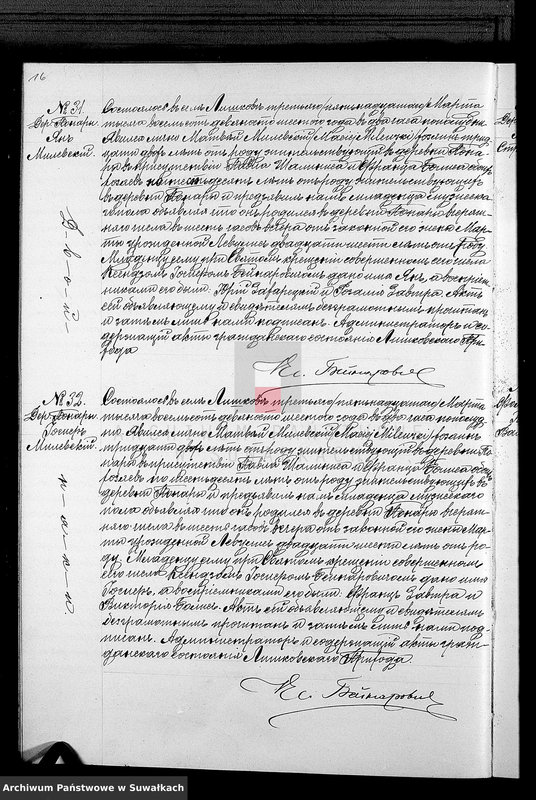 16
№ 31.
Дер. Понары
Янъ
Милевскій.
Двой-
Состоялось въ селѣ Лишковѣ третьяго/пятнадцатаго Марта
тысяча восемьсотъ девяносто шестого года въ два часа пополудни.
Явился лично Матвѣй Милевскій /Maciej Milewski/ хозяинъ трид-
цати двухъ лѣтъ отъ роду жительствующій въ деревнѣ Пона-
ры въ присутствіи Павла и Франца
по шестьдесятъ лѣтъ отъ роду жительствующихъ
въ деревнѣ Понары и предъявилъ намъ младенца мужеска-
го пола объявляя что онъ родился въ деревнѣ Понары вчераш-
няго числа въ шесть часовъ вечера отъ законной его жены Мар-
ты урожденной двадцати шести лѣтъ отъ роду.
Младенцу сему при Святомъ крещеніи совершенномъ сего числа
Ксендзомъ Госперомъ Бейнаровичемъ дано имя Янъ, а воспріем-
никами его были Юрій и Розалія Завтра. Актъ
сей объявляющему и свидѣтелямъ безграмотнымъ прочитанъ
и затѣмъ лишь нами подписанъ. Администраторъ и со-
держащій акты гражданскаго состоянія Лишковскаго При-
хода
Кс. Бейнаровичъ
№ 32.
Дер. Понары
Госперъ
Милевскій.
Состоялось въ селѣ Лишковѣ третьяго/пятнадцатаго Марта
тысяча восемьсотъ девяносто шестого года въ два часа пополуд-
ни. Явился лично Матвѣй Милевскій /Maciej Milewski/ хозяинъ
тридцати двухъ лѣтъ отъ роду жительствующій въ деревнѣ По-
нары въ присутствіи Павла и Франца
по шестьдесятъ лѣтъ отъ роду жительствующихъ въ
деревнѣ Понары и предъявилъ намъ младенца мужескаго
пола объявляя что онъ родился въ деревнѣ Понары вчераш-
няго числа въ шесть часовъ вечера отъ законной его жены Мар-
ты урожденной двадцати шести лѣтъ отъ ро-
ду. Младенцу сему при Святомъ крещеніи совершенномъ
сего числа Ксендзомъ Госперомъ Бейнаровичемъ дано имя
Госперъ, а воспріемниками его были Францъ Завтра и
Викторія. Актъ сей объявляющему и свидѣтелямъ
безграмотнымъ прочитанъ и затѣмъ лишь нами под-
писанъ. Администраторъ и содержащій акты граж-
данскаго состоянія Лишковскаго Прихода.
Кс. Бейнаровичъ
Archiwum Państwowe w Suwałkach